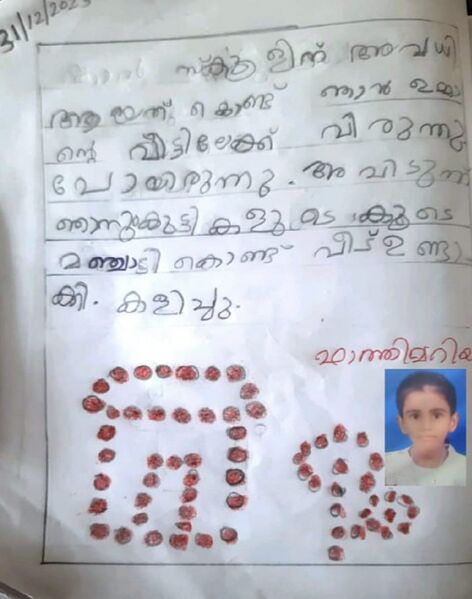 31/12/2023
സ്കൂളിന് അവധി
ആയത് കൊണ്ട് ഞാൻ ഉമ്മാ
ന്റെ വീട്ടിലേക്ക് വിരുന്നു
പോയിരുന്നു. അവിടുന്ന്
ഞാനുംകുട്ടികളുടെ കൂടെ
മഞ്ചാടി കൊണ്ട് വീട് ഉണ്ടാ
ക്കി. കളിച്ചു.
ഫാത്തിമറിയ